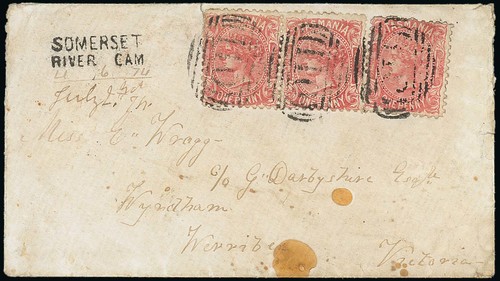 SOMERSET
RIVER CAM
TASMANIA
PENNY
Miss E Wragg
c/o G Darbyshire Esqr
Wyndham
Werribee
Victoria